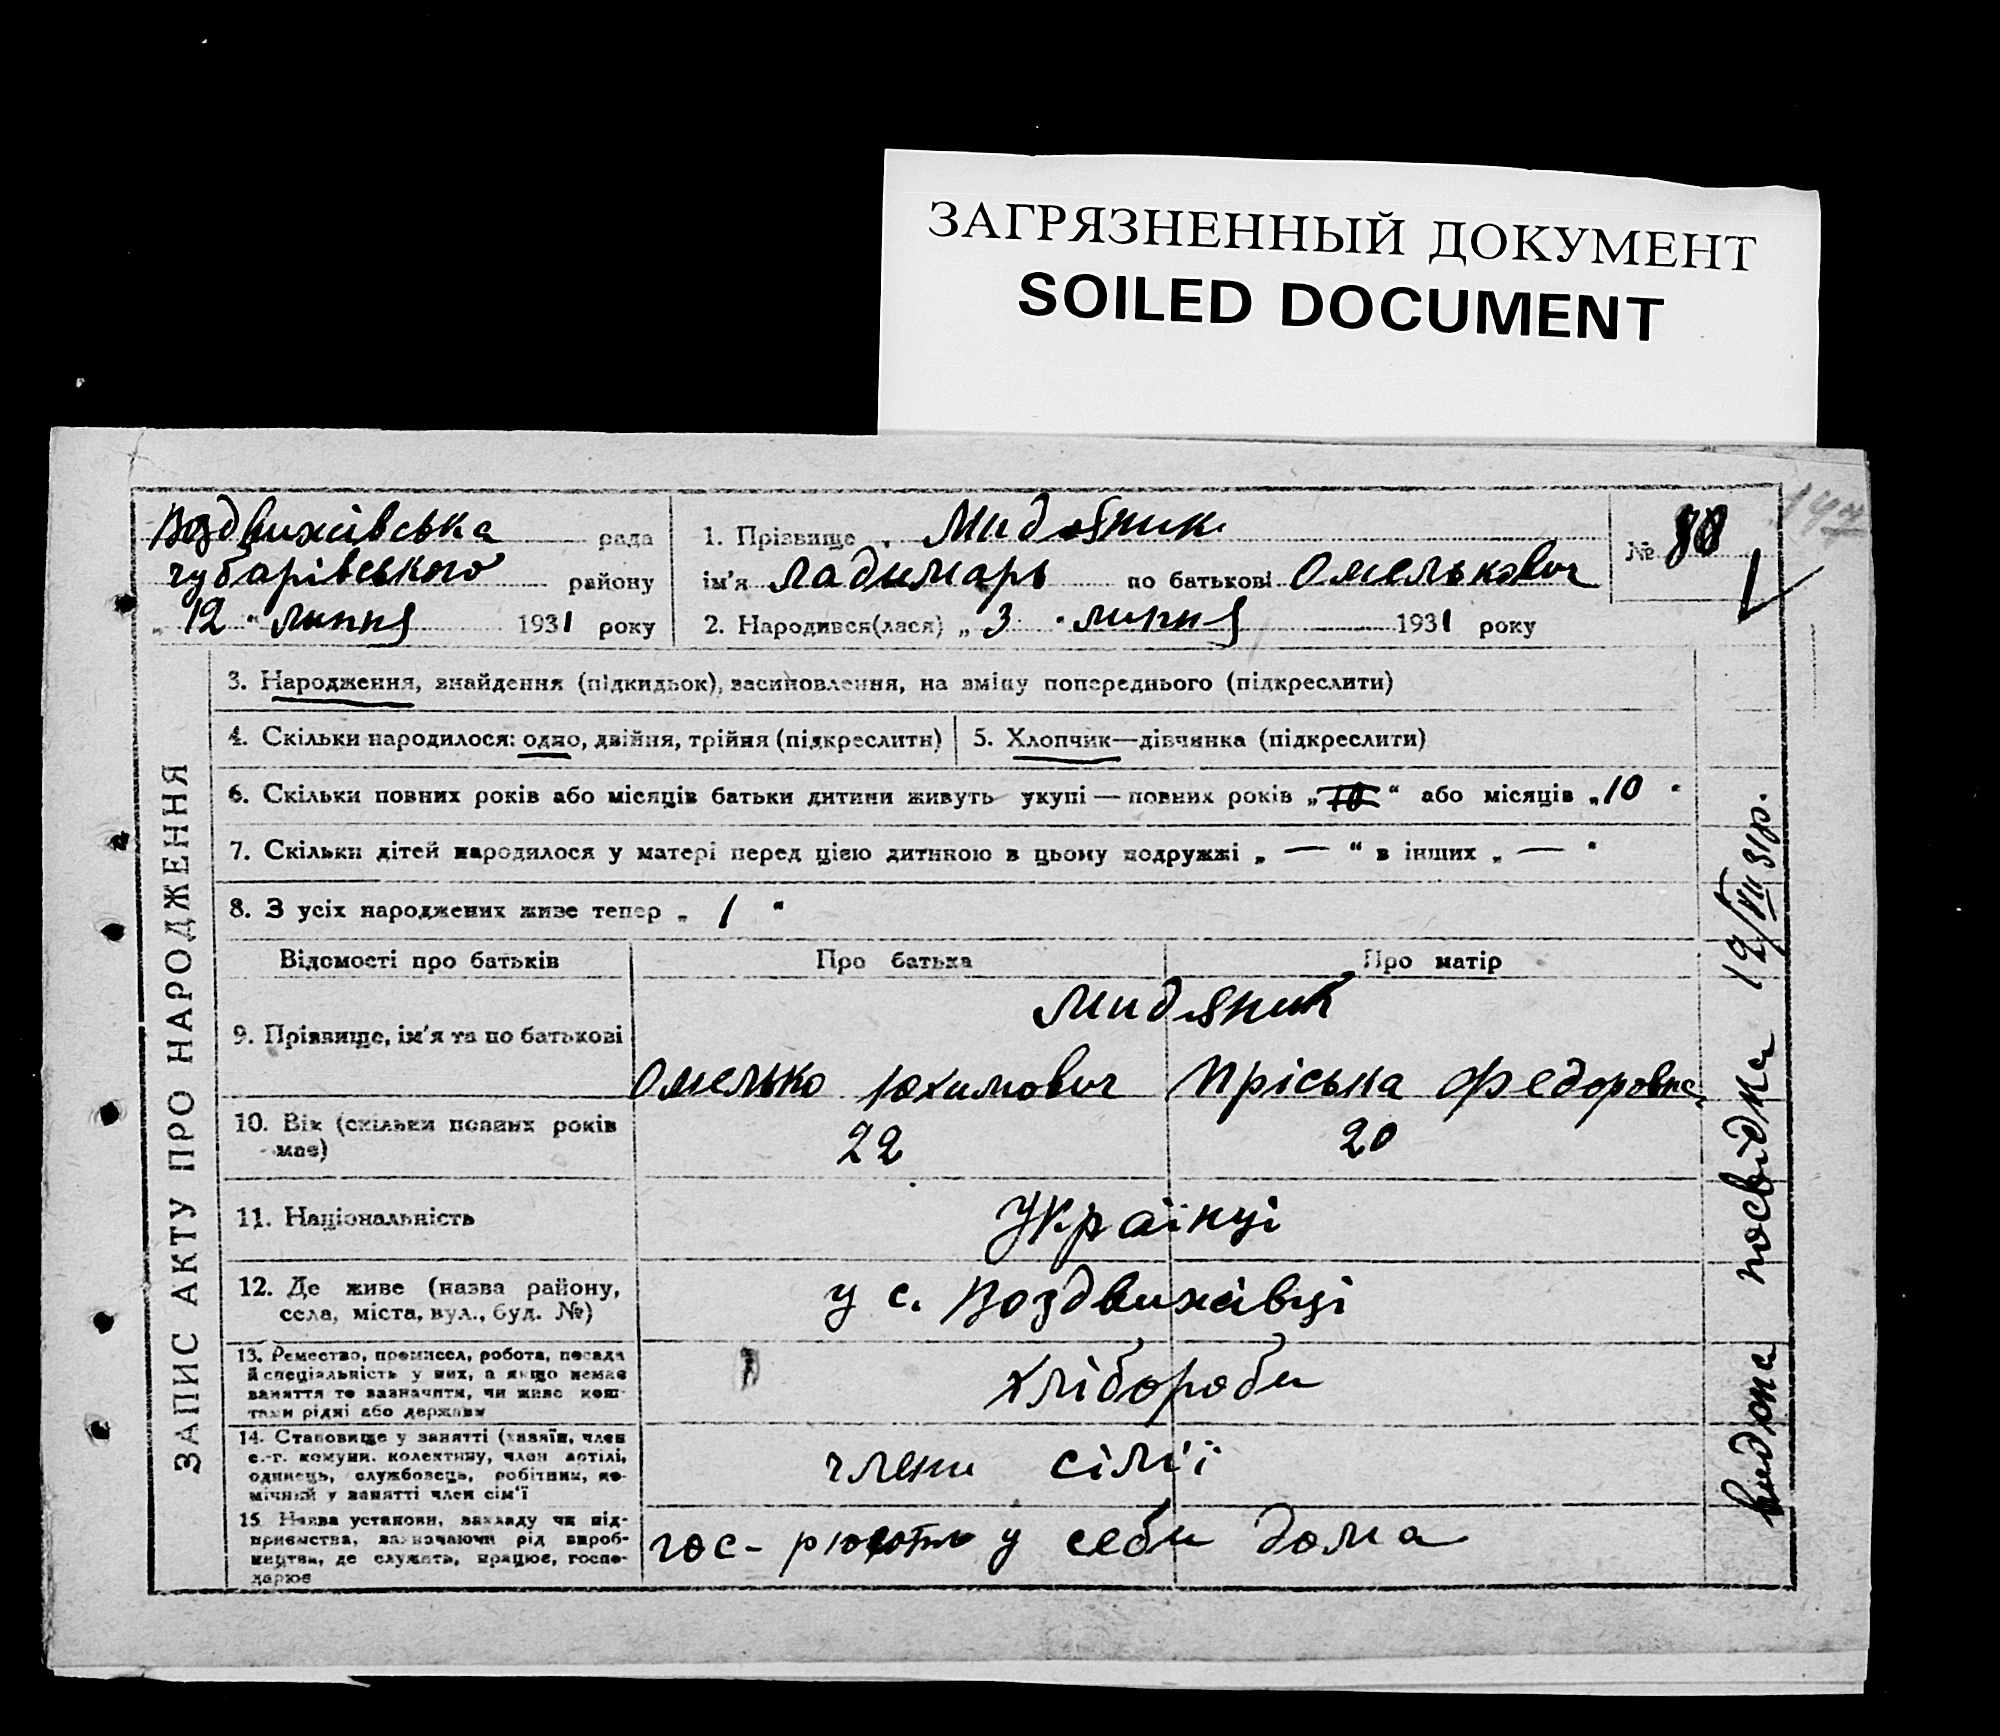 ЗАГРЯЗНЕННЫЙ ДОКУМЕНТ
SOILED DOCUMENT
Воздвижівська рада
Чубарівського району
„12“ липня 1931 року
1. Прізвище Мидяник
ім'я Ладимарь по батькові Омелькович
2. Народився(лася) „3“ липня 1931 року
№ 80
ЗАПИС АКТУ ПРО НАРОДЖЕННЯ
3. Народження, знайдення (підкидьок), засиновлення, на зміну попереднього (підкреслити)
4. Скільки народилося: одно, двійня, трійня (підкреслити)
5. Хлопчик—дівчинка (підкреслити)
6. Скільки повних років або місяців батьки дитини живуть укупі — повних років „10“ або місяців „10“
7. Скільки дітей народилося у матері перед цією дитиною в цьому подружжі „—“ в інших „—“
8. З усіх народжених живе тепер „1“
Відомості про батьків Про батька Про матір
9. Прізвище, ім'я та по батькові
Мидяник
Омелько Юхимович Пріська Федоровна
10. Вік (скільки повних років має)
22 20
11. Національність
Українці
12. Де живе (назва району,
села, міста, вул., буд. №)
у с. Воздвижівці
13. Ремество, промисел, робота, посада
й спеціальність у них, а якщо немає
заняття то зазначити, чи живе кош-
тами рідні або держави
хлібороби
14. Становище у занятті (хазяїн, член
с.-г. комуни, колективу, член артілі,
одинець, службовець, робітник, по-
мічний у занятті член сім'ї
члени сілії
15. Назва установи, закладу чи під-
приємства, зазначаючи рід вироб-
ництва, де служить, працює, госпо-
дарює
гос- у себи дома
видана посвідка 12/VII 31р.